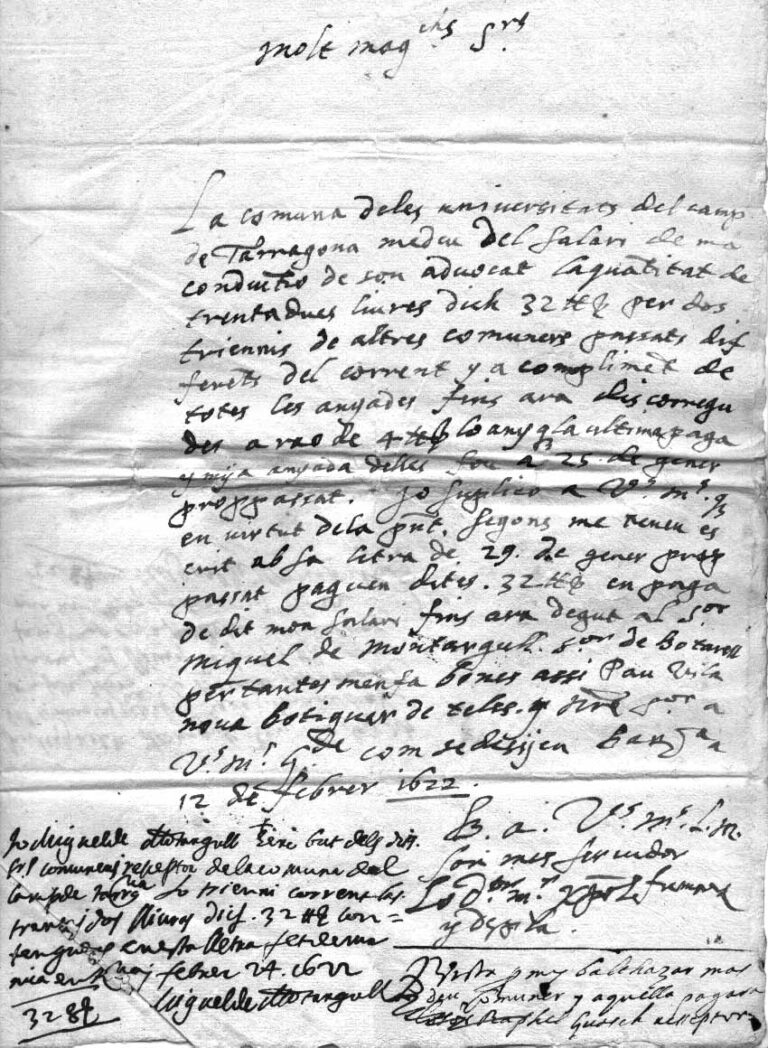 molt mag^chs S^rs
La comuna deles universitats del camp
de Tarragona medeu del salari de ma
conductio de son advocat la quãtitat de
trentadues liures dich 32 ℔ per dos
triennis de altres comuners passats dif
ferẽts del corrent y a complimẽt de
totes les anyades fins ara discorregu
des a rao de 4 ℔ lo any q la ultima paga
y mija anyada delles fou a 25 de gener
proppassat. Jo suplico a V^s m^s q
en virtut dela pñt. segons me teneu es
crit ab sa letra de 29. de gener prop
passat paguen dites. 32 ℔ en paga
de dit mon salari fins ara degut al S^or
Miquel de Montargull. S^or de Botarell
per tantes bones assi Pau Vila
nova botiguer de teles. y
V^s m^s G^de com se desijen Bar^na a
12 de febrer 1622.
B. a. V^s m^s L. m.
son mes servidor
Lo D^or
y
Jo Miguel de Montargull he rebut dels dits
S^rs comuners receptor de la comuna del
camp de Tarr^na lo trienni corrent las
trenta y dos lliuras dich. 32 ℔ con=
tengudes en esta lletra fet de ma
mia en febrer 24. 1622
Miguel de Montargull
32 ℔
Vista p my balthazar mas
deu comuner y aquella pagara
Raphel Guasch receptor